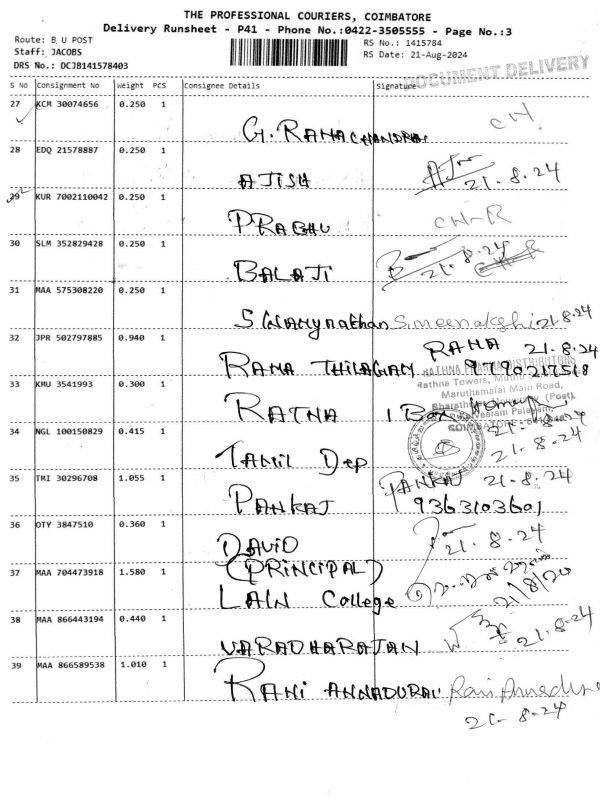 THE PROFESSIONAL COURIERS, COIMBATORE
Delivery Runsheet - P41 - Phone No.:0422-3505555 - Page No.:3
Route: B, U POST
RS No.: 1415784
Staff: JACOBS
RS Date: 21-Aug-2024
DRS No.: DCJB141578403
DOCUMENT DELIVERY
S No Consignment No Weight PCS Consignee Details Signature
27 KCM 30074656 0.250 1
G. RAMACHANDRAN
28 EDQ 21578887 0.250 1
AJISH 21.8.24
29 KUR 7002110042 0.250 1
PRABHU
30 SLM 352829428 0.250 1
BALAJI 21.8.24
31 MAA 575308220 0.250 1
Swamynathan S. meenakshi 21.8.24
32 JPR 502797885 0.940 1
RAMA 21.8.24
RAMA THILAGAM 9790217518
33 KMU 3541993 0.300 1
Rathna Towers,
Maruthamalai Main Road,
RATNA 1 Box 21.8.24
34 NGL 100150829 0.415 1
21.8.24
TAMIL Dep
35 TMI 30296708 1.055 1
PANKAJ 21-8-24
PANKAJ 9363103601
36 OTY 3847510 0.360 1
21.8.24
DAVID
37 MAA 704473918 1.580 1
(PRINCIPAL)
LAIN College
38 MAA 866443194 0.440 1
VARADHARAJAN 21.8.24
39 MAA 866589538 1.010 1
RANI ANNADURAI Rani Annadurai
21-8-24